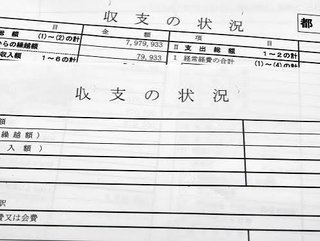 収支の状況
都
目 金額 項 目
額 (1)~(2)の計 7,979,933 Ⅱ 支出総額 1~2の計
からの繰越額
収入額 1~6の計 79,933 1 経常経費の合計 (1)~(4)の計
収支の状況
額
繰越額)
入額)
訳
費又は会費